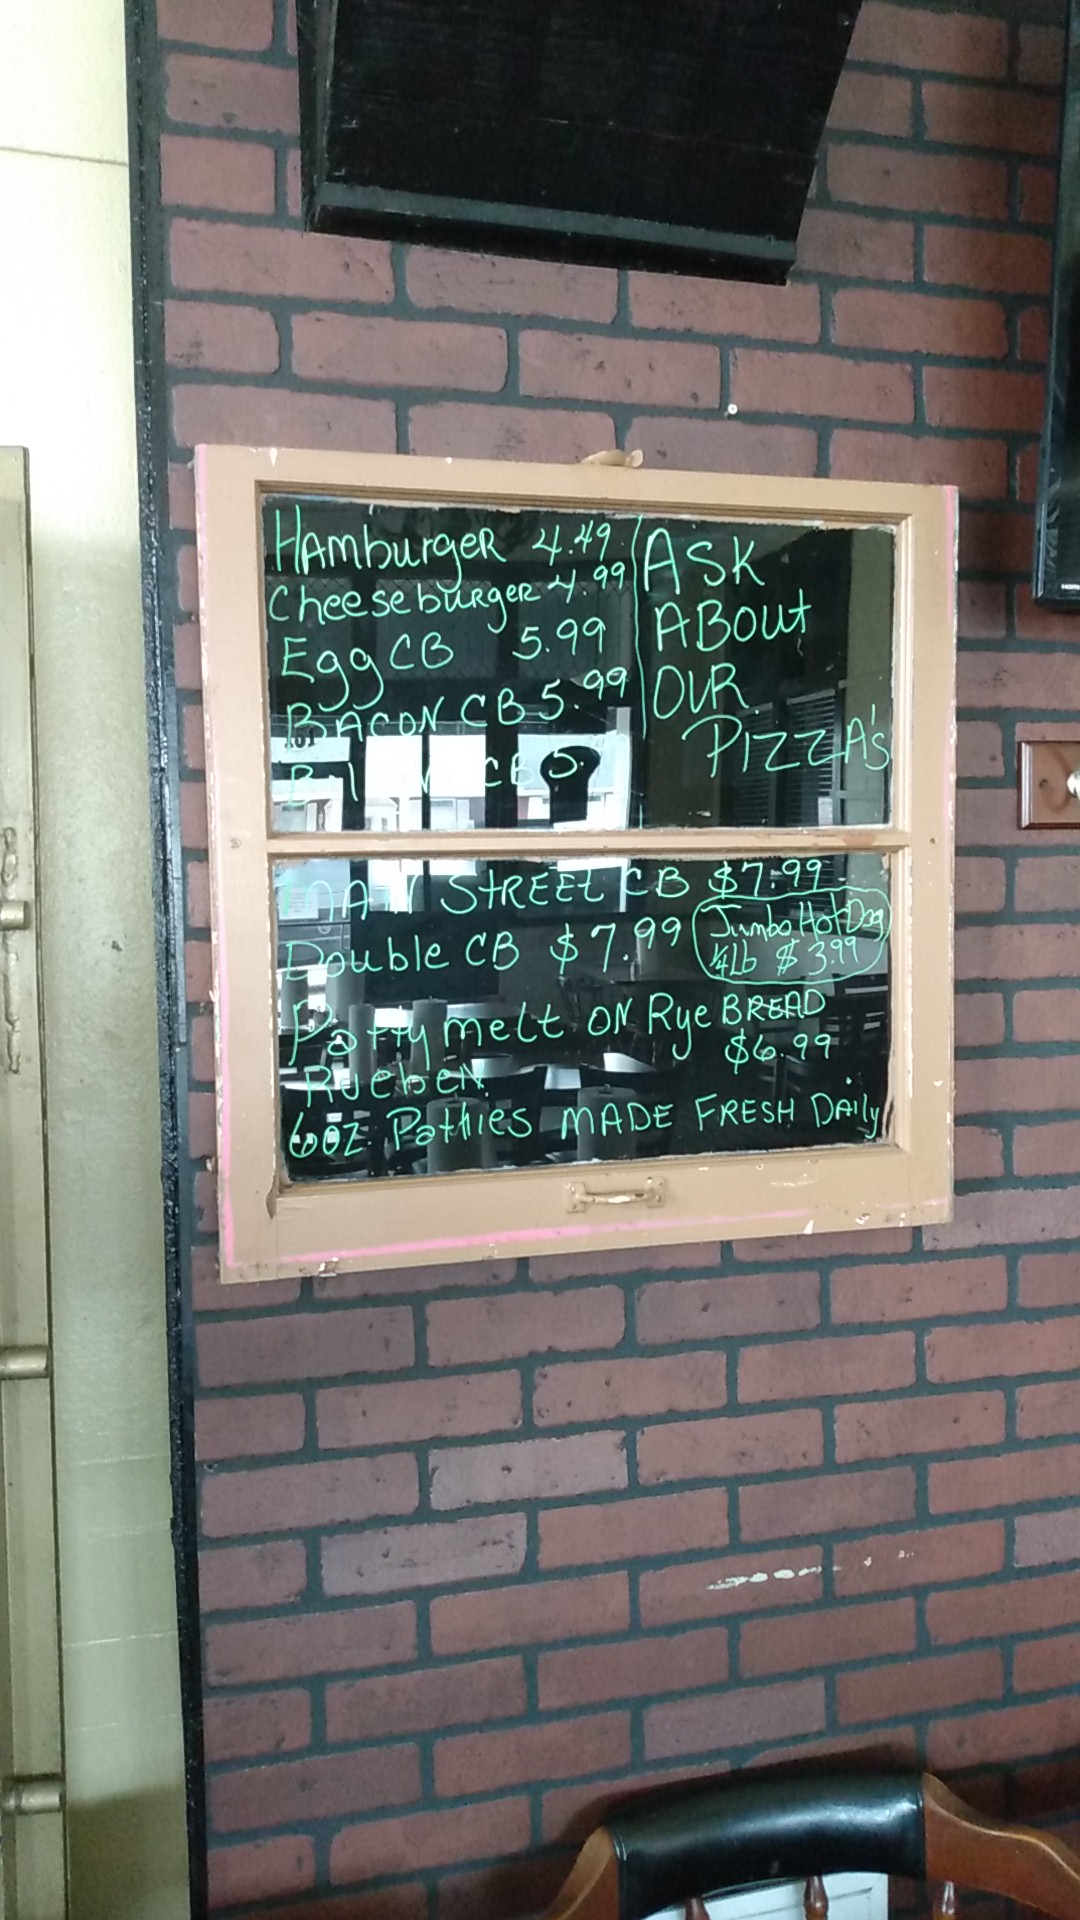 Hamburger 4.49
Cheeseburger 4.99
Egg CB 5.99
BACON CB 5.99
CB 5.
ASK
ABOUT
OUR
PIZZA's
MAIN STREET CB $7.99
Double CB $7.99
Jumbo Hot Dog
1/4 Lb $3.99
Patty melt ON Rye BREAD
$6.99
Rueben
6oz. Patties MADE FRESH Daily